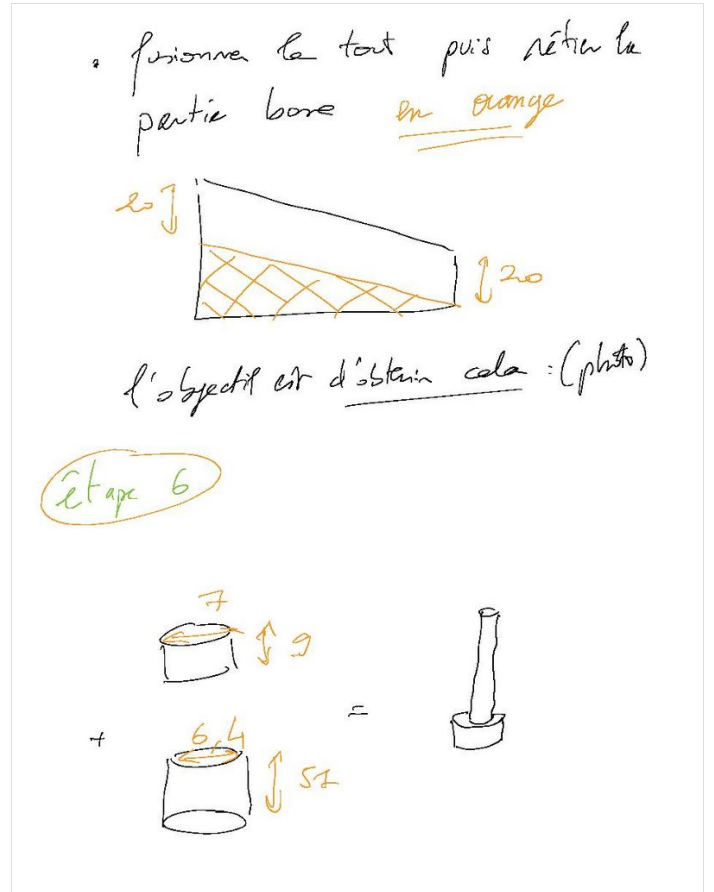 • fusionner le tout puis rétirer la
partie base en orange
20
20
l'objectif est d'obtenir cela : (photo)
étape 6
7
9
+
6,4
51
=